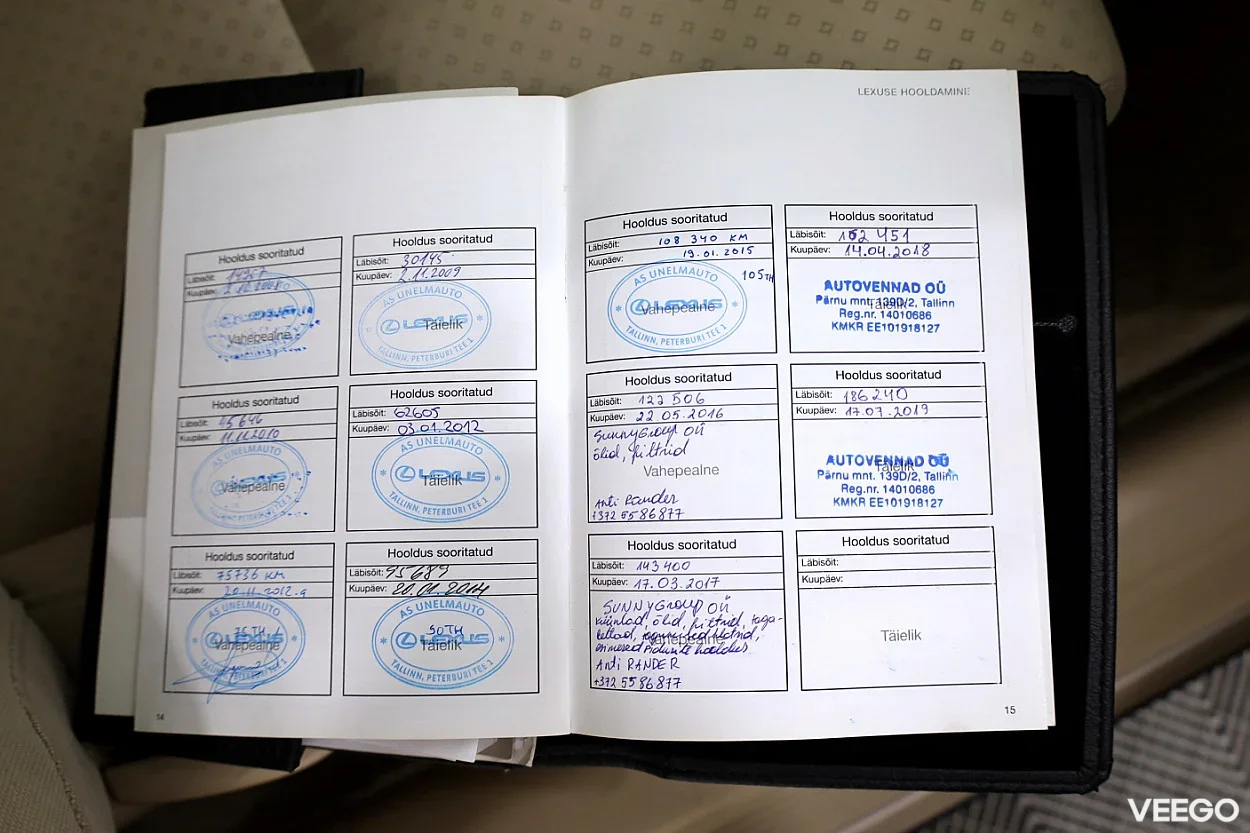 LEXUSE HOOLDAMINE
Hooldus sooritatud
Läbisõit:
Kuupäev:
Vahepealne
Hooldus sooritatud
Läbisõit: 30145
Kuupäev: 2.11.2009
AS UNELMAUTO
LEXUS
Täielik
TALLINN, PETERBURI TEE 1
Hooldus sooritatud
Läbisõit: 45646
Kuupäev: 11.11.2010
AS UNELMAUTO
LEXUS
Vahepealne
TALLINN, PETERBURI TEE 1
Hooldus sooritatud
Läbisõit: 62605
Kuupäev: 03.01.2012
AS UNELMAUTO
LEXUS
Täielik
TALLINN, PETERBURI TEE 1
Hooldus sooritatud
Läbisõit: 75736 KM
Kuupäev: 20.11.2012.a
AS UNELMAUTO
75TH
LEXUS
Vahepealne
TALLINN, PETERBURI TEE 1
Hooldus sooritatud
Läbisõit: 95689
Kuupäev: 20.01.2014
AS UNELMAUTO
90TH
LEXUS
Täielik
TALLINN, PETERBURI TEE 1
14
Hooldus sooritatud
Läbisõit: 108 340 KM
Kuupäev: 19.01.2015
105TH
AS UNELMAUTO
LEXUS
Vahepealne
TALLINN, PETERBURI TEE 1
Hooldus sooritatud
Läbisõit: 162 451
Kuupäev: 14.04.2018
AUTOVENNAD OÜ
Täielik
Pärnu mnt. 139D/2, Tallinn
Reg.nr. 14010686
KMKR EE101918127
Hooldus sooritatud
Läbisõit: 122 506
Kuupäev: 22 05.2016
SunnyGroup OÜ
õlid, filtrid
Vahepealne
Anti Rander
+372 5586877
Hooldus sooritatud
Läbisõit: 186240
Kuupäev: 17.07.2019
AUTOVENNAD OÜ
Täielik
Pärnu mnt. 139D/2, Tallinn
Reg.nr. 14010686
KMKR EE101918127
Hooldus sooritatud
Läbisõit: 143400
Kuupäev: 17.03.2017
SUNNYGroup OÜ
küünlad, õlid, filtrid, taga-
Vahepealne
esimesed pidurite hooldus
Anti RANDER
+372 5586877
Hooldus sooritatud
Läbisõit:
Kuupäev:
Täielik
15
VEEGO